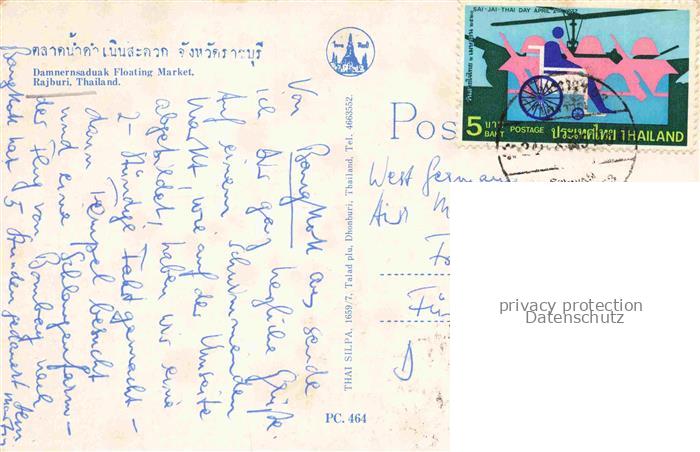 ตลาดน้ำดำเนินสะดวก จังหวัดราชบุรี
Damnernsaduak Floating Market,
Rajburi, Thailand.
Von Bangkok aus sende
ich Dir ganz herzliche Grüße.
Auf einem schwimmenden
Markt, wie auf der Umseite
abgebildet, haben wir eine
2-stündige Fahrt gemacht -
dann Tempel besucht
und eine Schlangenfarm -
der Flug von Bombay nach
Bangkok hat 5 Stunden gedauert
THAI SILPA, 1659/7, Talad plu, Dhonburi, Thailand, Tel. 4663552.
PC. 464
Pos
West Germany
Air M
D
SAI-JAI-THAI DAY APRIL
5 บาท
BAHT
POSTAGE
ประเทศไทย THAILAND
privacy protection
Datenschutz